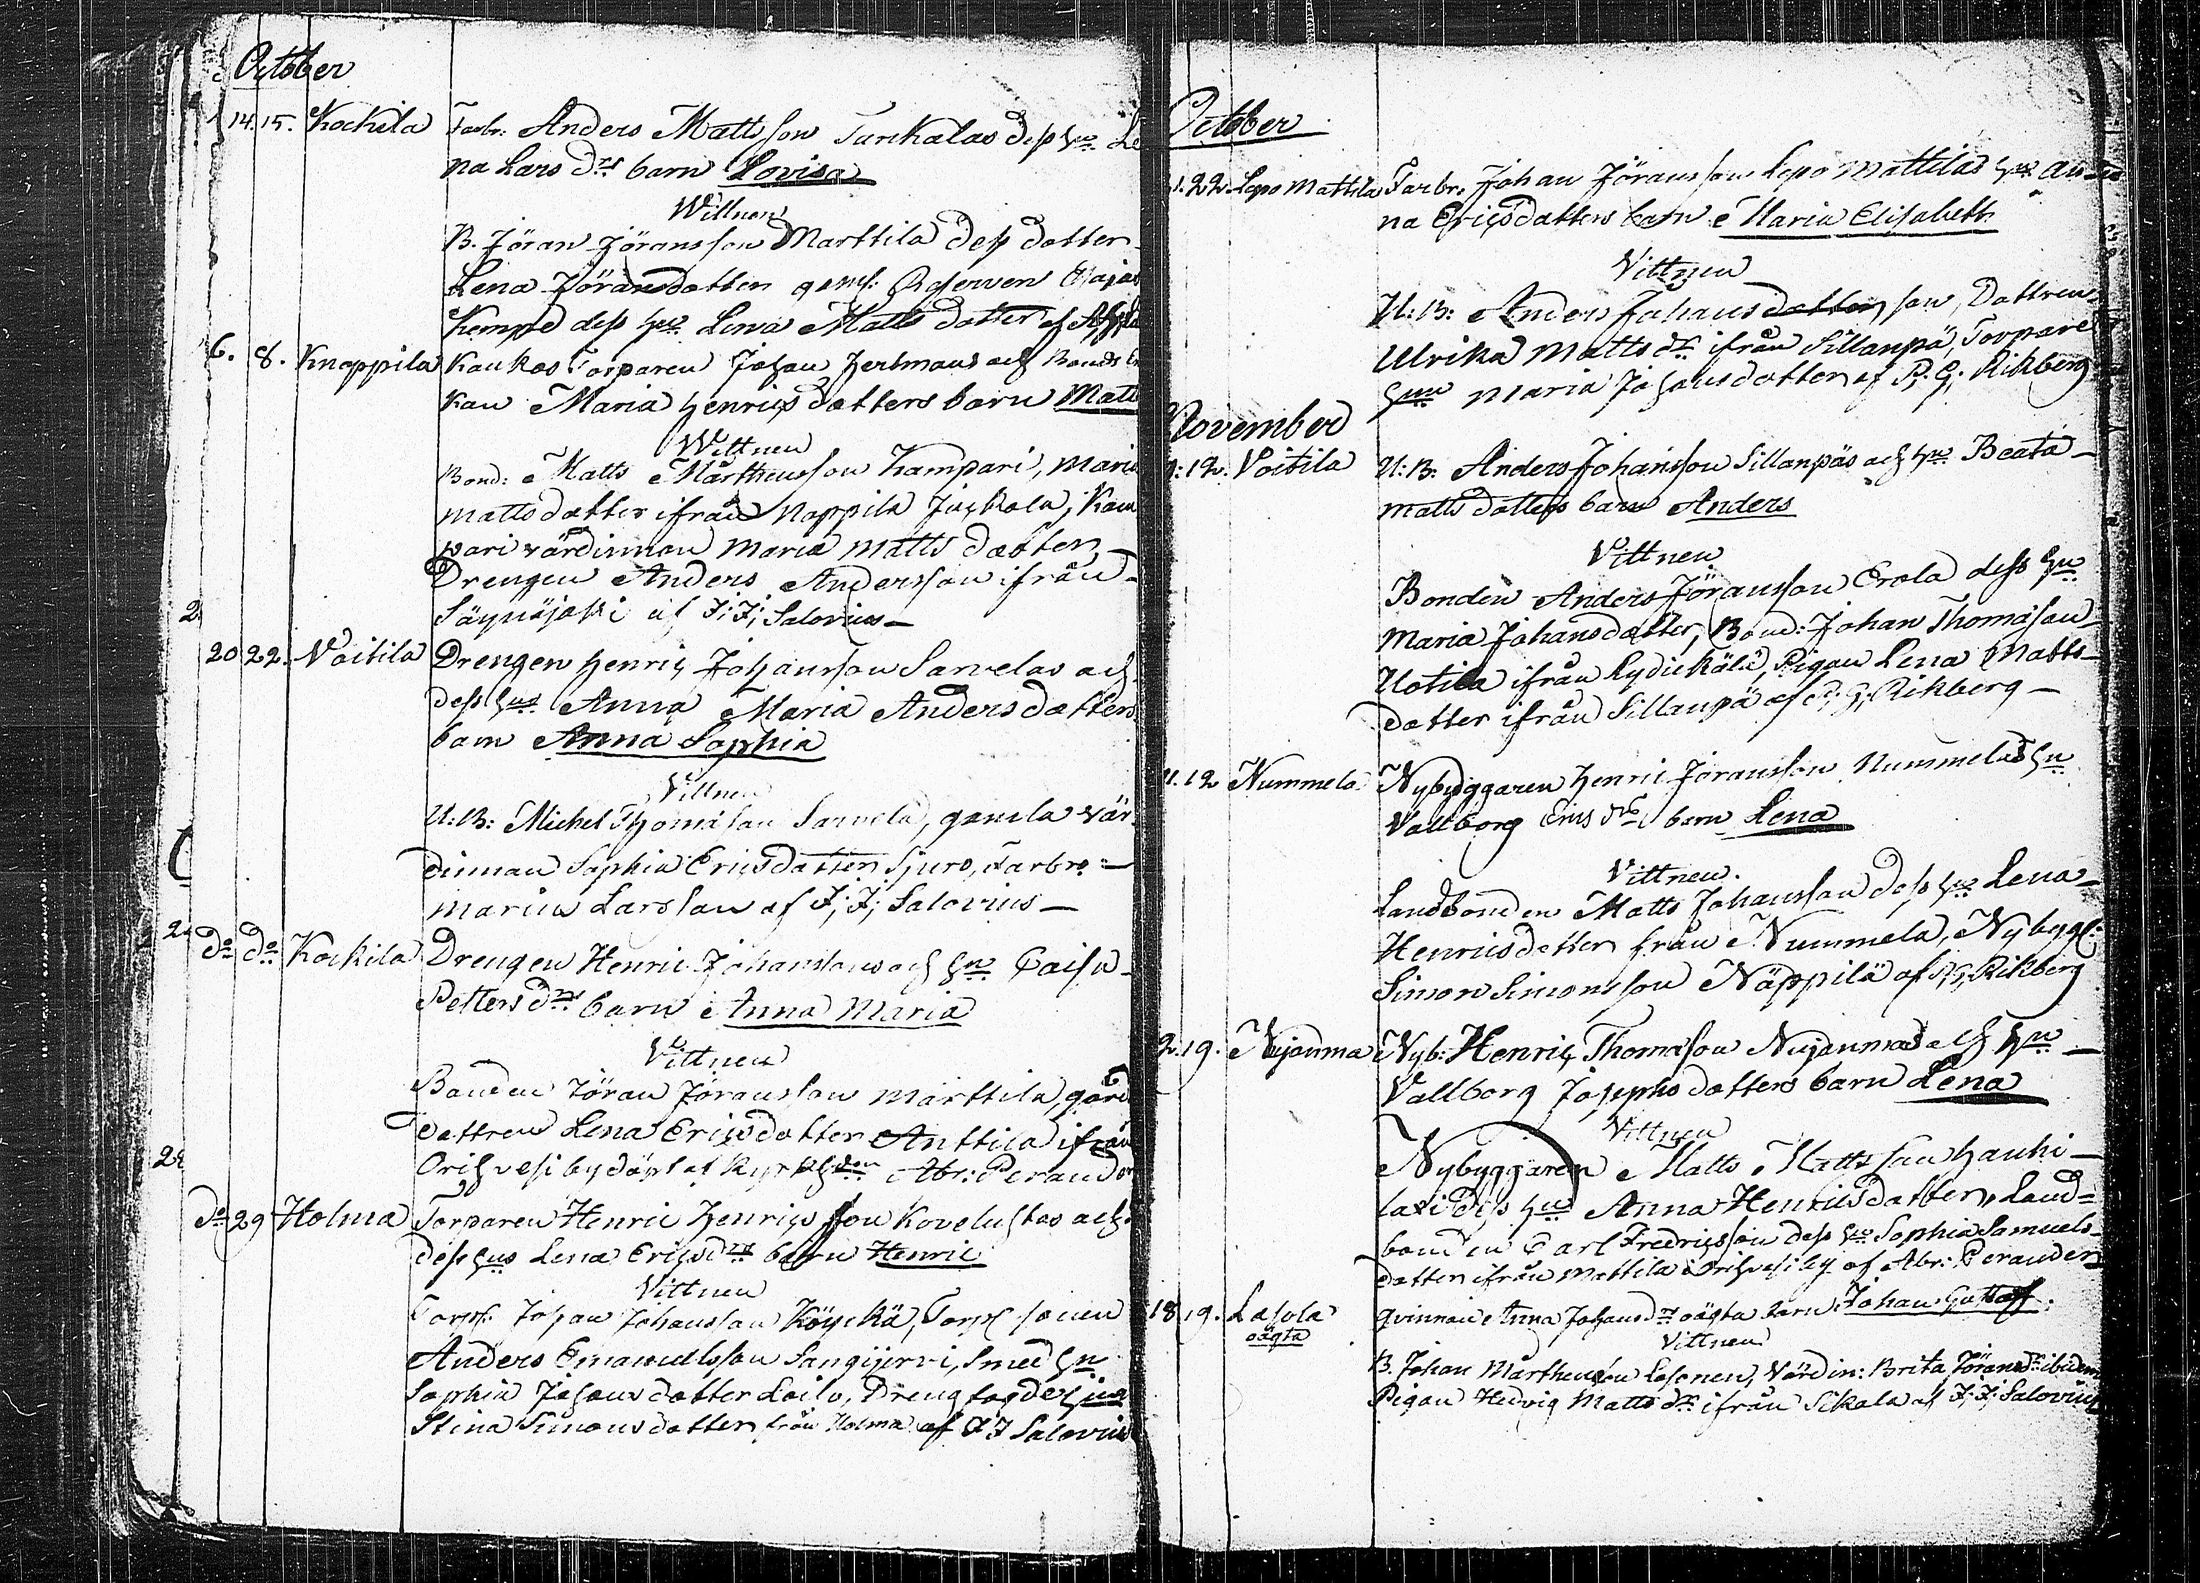 October
14. 15. Kockila Farbr. Anders Mattsson Turkalas dess hu Le
na Lars drs barn Lovisa
Wittnen
B. Jöran Jöransson Marttila dess dotter
Lena Jöransdotter gemh: Reserven Majas
Kempe dess hu Lena Matts dotter af
6. 8. Knappila Kaukos Torparen Johan Hertmans och Bonds
kan Maria Henrics dotters barn Matts
Wittnen
Bond: Matts Mårthensson Kampari, Maria
Mattsdotter ifrån Nappila, Kam
pari värdinnan Maria Matts dotter,
Drengen Anders Andersson ifrån
Säynäjoki af J: J: Salovius
20 22. Voitila Drengen Henric Johansson Sarvelas och
dess hus Anna Maria Anders dotters
barn Anna Sophia
Vittnen
U: B: Michel Thomasson Sarvela, gamla vär
dinnan Sophia Ericsdotter Sjuro, Farbro
Marius Larsson af J: J: Salovius
do do Kockila Drengen Henric Johanssons och hu Caisa
Petters drs barn Anna Maria
Vittnen
Bonden Jöran Jöransson Marttila, gård
dottren Lena Ericsdotter Anttila ifrån
Orihvesi by döpt af Abr: Perander
do 29 Holma Torparen Henric Henricsson Koveluhtas och
dess hus Lena Ericsdrs barn Henric
Vittnen
Torp: Johan Johansson Köyckä, Torp sonen
Anders Emanuelsson Sangijervi, Smed hu
Sophia Johans dotter Loilo, Dreng
Stina Simons dotter från Holma af J J Salovius
October
22. Lepo Mattila Farbr. Johan Jöransson Lepo Mattilas hus An
na Ericsdotters barn Maria Elisabeth
Vittnen
U: B: Anders Johansdotter son, Dottren
Ulrika Matts dr ifrån Sillanpä, Torpare
hun Maria Johansdotter af P. G. Rikberg
November
12. Voitila U: B: Anders Johansson Sillanpäs och hu Beata
Matts dotters barn Anders
Vittnen
Bonden Anders Jöransson Erola dess hu
Maria Johansdotter, Bond: Johan Thomasson
Uotila ifrån Lydickälä, Pigan Lena Matts
dotter ifrån Sillanpä af P. G. Rikberg
11. 12 Nummela Nybyggaren Henric Jöransson Nummelas hu
Vallborg Erics drs barn Lena
Vittnen.
Landbonden Matts Johansson dess hu Lena
Henricsdotter från Nummela, Nybygg:
Simon Simonsson Näppilä af P. G. Rikberg
2. 19. Nujanma Nyb: Henric Thomasson Nujanmas och hu
Vallborg Josephs dotters barn Lena
Vittnen
Nybyggaren Matts Mattsson Hauki
laxi dess hu Anna Henricsdotter, Land=
bonden Carl Fredricsson dess hu Sophia Samuels
dotter ifrån Mattila Orihvesi by af Abr: Perander
18 19. Lasola Qvinnan Anna Johans drs oägta barn Johan Gustaf.
oägta
Vittnen
B. Johan Mårthensson Lasonen, Värdin: Brita Jörans dr ibidem
Pigan Hedvig Matts dr ifrån Sikala af J: J: Salovius